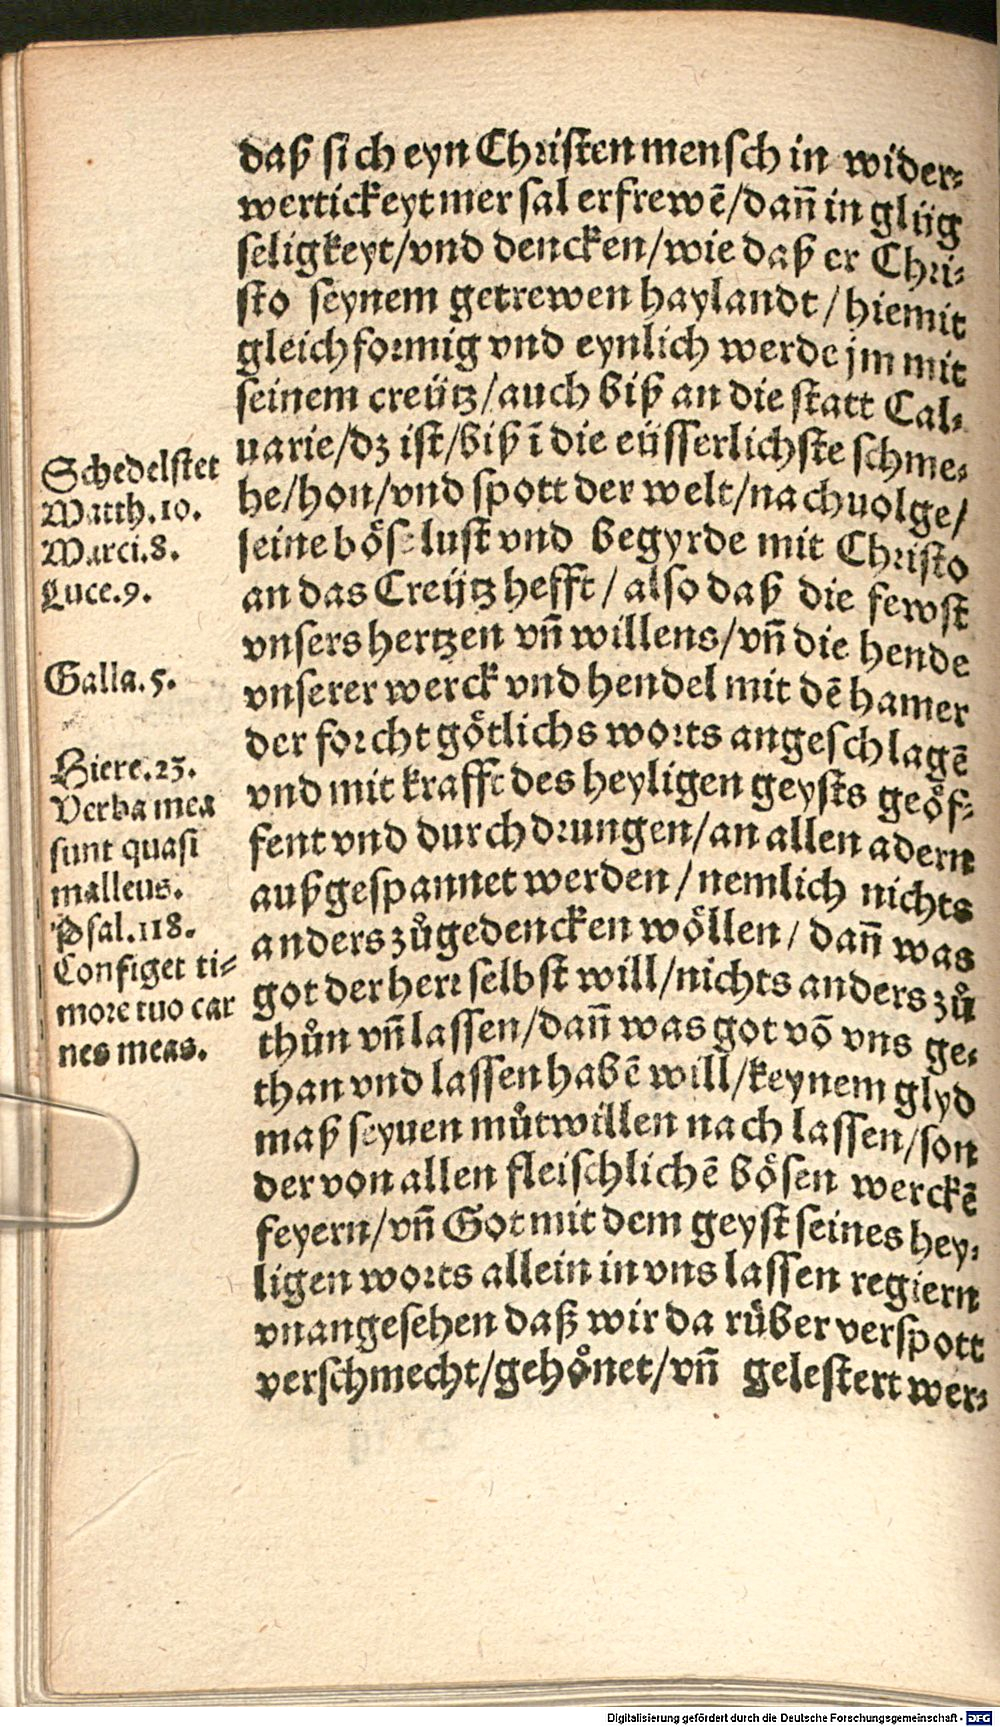 daß sich eyn Christen mensch in wider-
wertickeyt mer sal erfrewē/dañ in glüg
seligkeyt/vnd dencken/wie daß er Chri-
sto seynem getrewen haylandt/hiemit
gleichformig vnd eynlich werde jm mit
seinem creütz/auch biß an die statt Cal-
uarie/dz ist/biß ī die eüsserlichste schme-
he/hon/vnd spott der welt/nachuolge/
seine böse lust vnd begyrde mit Christo
an das Creütz hefft/also daß die fewst
vnsers hertzen vñ willens/vñ die hende
vnserer werck vnd hendel mit dē hamer
der forcht götlichs worts angeschlagē
vnd mit krafft des heyligen geysts geöf-
fent vnd durchdrungen/an allen adern
außgespannet werden/nemlich nichts
anders zůgedencken wöllen/dañ was
got der herr selbst will/nichts anders zů
thůn vñ lassen/dañ was got vō vns ge-
than vnd lassen habē will/keynem glyd
maß seynen můtwillen nach lassen/son
der von allen fleischlichē bösen werckē
feyern/vñ Got mit dem geyst seines hey-
ligen worts allein in vns lassen regiern
vnangesehen daß wir da rüber verspott
verschmecht/gehönet/vñ gelestert wer-
Schedelstet
Matth.10.
Marci.8.
Luce.9.
Galla.5.
Hiere.23.
Verba mea
sunt quasi
malleus.
Psal.118.
Configet ti-
more tuo car
nes meas.
Digitalisierung gefördert durch die Deutsche Forschungsgemeinschaft - DFG